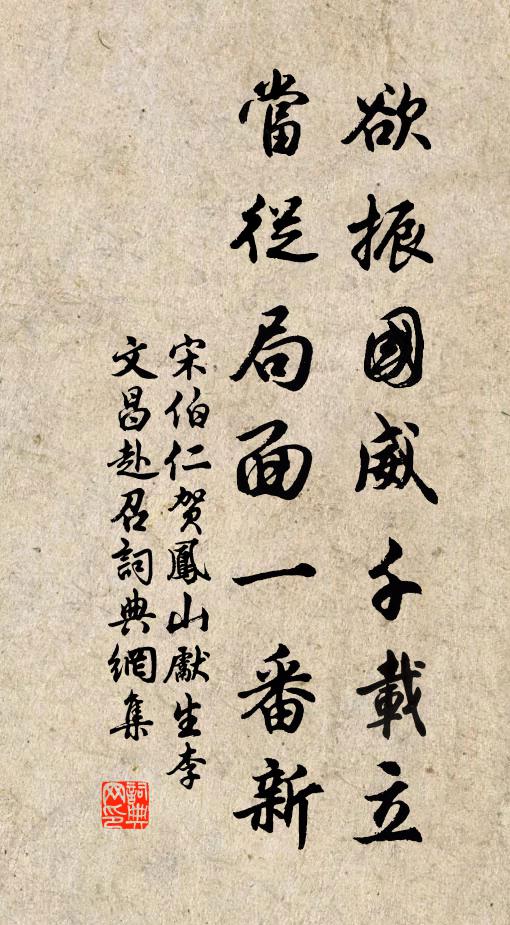 欲振國威千載立
當從局面一番新
宋伯仁賀鳳山獻生李
文昌赴召詞典網集
詞典
网印